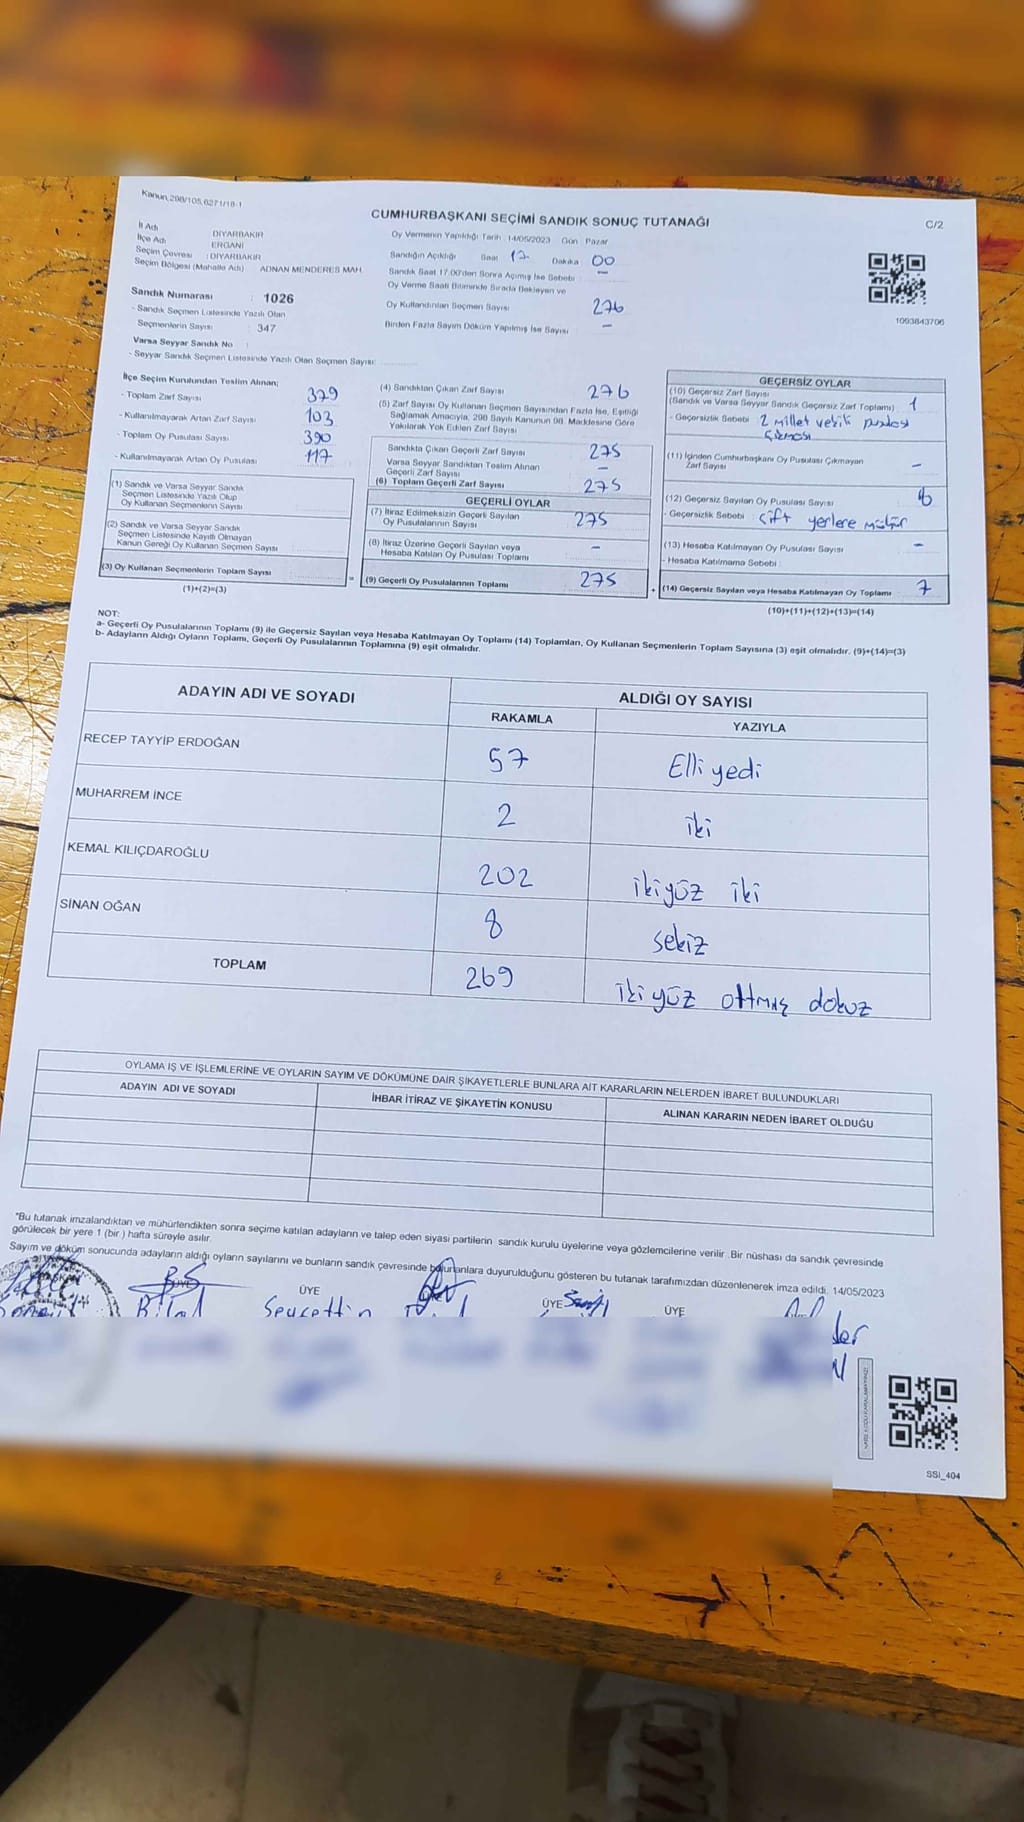 Kanun,298/105,6271/18-1
CUMHURBAŞKANI SEÇİMİ SANDIK SONUÇ TUTANAĞI
C/2
İl Adı DİYARBAKIR
İlçe Adı ERGANİ
Seçim Çevresi : DİYARBAKIR
Seçim Bölgesi (Mahalle Adı) ADNAN MENDERES MAH.
Oy Vermenin Yapıldığı Tarih 14/05/2023 Gün Pazar
Sandığın Açıldığı Saat 17 Dakika 00
Sandık Saat 17.00'den Sonra Açılmış İse Sebebi : –
Oy Verme Saati Bitiminde Sırada Bekleyen ve
Oy Kullandırılan Seçmen Sayısı 276
Birden Fazla Sayım Döküm Yapılmış İse Sayısı –
1093843706
Sandık Numarası : 1026
- Sandık Seçmen Listesinde Yazılı Olan
Seçmenlerin Sayısı : 347
Varsa Seyyar Sandık No :
- Seyyar Sandık Seçmen Listesinde Yazılı Olan Seçmen Sayısı:
İlçe Seçim Kurulundan Teslim Alınan;
- Toplam Zarf Sayısı 379
- Kullanılmayarak Artan Zarf Sayısı 103
- Toplam Oy Pusulası Sayısı 390
- Kullanılmayarak Artan Oy Pusulası 117
(1) Sandık ve Varsa Seyyar Sandık
Seçmen Listesinde Yazılı Olup
Oy Kullanan Seçmenlerin Sayısı
(2) Sandık ve Varsa Seyyar Sandık
Seçmen Listesinde Kayıtlı Olmayan
Kanun Gereği Oy Kullanan Seçmen Sayısı
(3) Oy Kullanan Seçmenlerin Toplam Sayısı
(1)+(2)=(3)
(4) Sandıktan Çıkan Zarf Sayısı 276
(5) Zarf Sayısı Oy Kullanan Seçmen Sayısından Fazla İse, Eşitliği
Sağlamak Amacıyla, 298 Sayılı Kanunun 98. Maddesine Göre
Yakılarak Yok Edilen Zarf Sayısı
Sandıkta Çıkan Geçerli Zarf Sayısı 275
Varsa Seyyar Sandıktan Teslim Alınan
Geçerli Zarf Sayısı –
(6) Toplam Geçerli Zarf Sayısı 275
GEÇERLİ OYLAR
(7) İtiraz Edilmeksizin Geçerli Sayılan
Oy Pusulalarının Sayısı 275
(8) İtiraz Üzerine Geçerli Sayılan veya
Hesaba Katılan Oy Pusulası Toplamı –
= (9) Geçerli Oy Pusulalarının Toplamı 275 +
GEÇERSİZ OYLAR
(10) Geçersiz Zarf Sayısı
(Sandık ve Varsa Seyyar Sandık Geçersiz Zarf Toplamı) 1
- Geçersizlik Sebebi : 2 millet vekili puslası
çıkması
(11) İçinden Cumhurbaşkanı Oy Pusulası Çıkmayan
Zarf Sayısı –
(12) Geçersiz Sayılan Oy Pusulası Sayısı 6
- Geçersizlik Sebebi : çift yerlere mühür
(13) Hesaba Katılmayan Oy Pusulası Sayısı –
- Hesaba Katılmama Sebebi :
(14) Geçersiz Sayılan veya Hesaba Katılmayan Oy Toplamı 7
(10)+(11)+(12)+(13)=(14)
NOT:
a- Geçerli Oy Pusulalarının Toplamı (9) ile Geçersiz Sayılan veya Hesaba Katılmayan Oy Toplamı (14) Toplamları, Oy Kullanan Seçmenlerin Toplam Sayısına (3) eşit olmalıdır. (9)+(14)=(3)
b- Adayların Aldığı Oyların Toplamı, Geçerli Oy Pusulalarının Toplamına (9) eşit olmalıdır.
ADAYIN ADI VE SOYADI ALDIĞI OY SAYISI
RAKAMLA YAZIYLA
RECEP TAYYİP ERDOĞAN 57 Elli yedi
MUHARREM İNCE 2 iki
KEMAL KILIÇDAROĞLU 202 ikiyüz iki
SİNAN OĞAN 8 sekiz
TOPLAM 269 iki yüz altmış dokuz
OYLAMA İŞ VE İŞLEMLERİNE VE OYLARIN SAYIM VE DÖKÜMÜNE DAİR ŞİKAYETLERLE BUNLARA AİT KARARLARIN NELERDEN İBARET BULUNDUKLARI
ADAYIN ADI VE SOYADI İHBAR İTİRAZ VE ŞİKAYETİN KONUSU ALINAN KARARIN NEDEN İBARET OLDUĞU
*Bu tutanak imzalandıktan ve mühürlendikten sonra seçime katılan adayların ve talep eden siyasi partilerin sandık kurulu üyelerine veya gözlemcilerine verilir. Bir nüshası da sandık çevresinde
görülecek bir yere 1 (bir ) hafta süreyle asılır.
Sayım ve döküm sonucunda adayların aldığı oyların sayılarını ve bunların sandık çevresinde bulunanlara duyurulduğunu gösteren bu tutanak tarafımızdan düzenlenerek imza edildi. 14/05/2023
BAŞKAN ÜYE ÜYE ÜYE ÜYE
Bilal Seyfettin
SSI_404